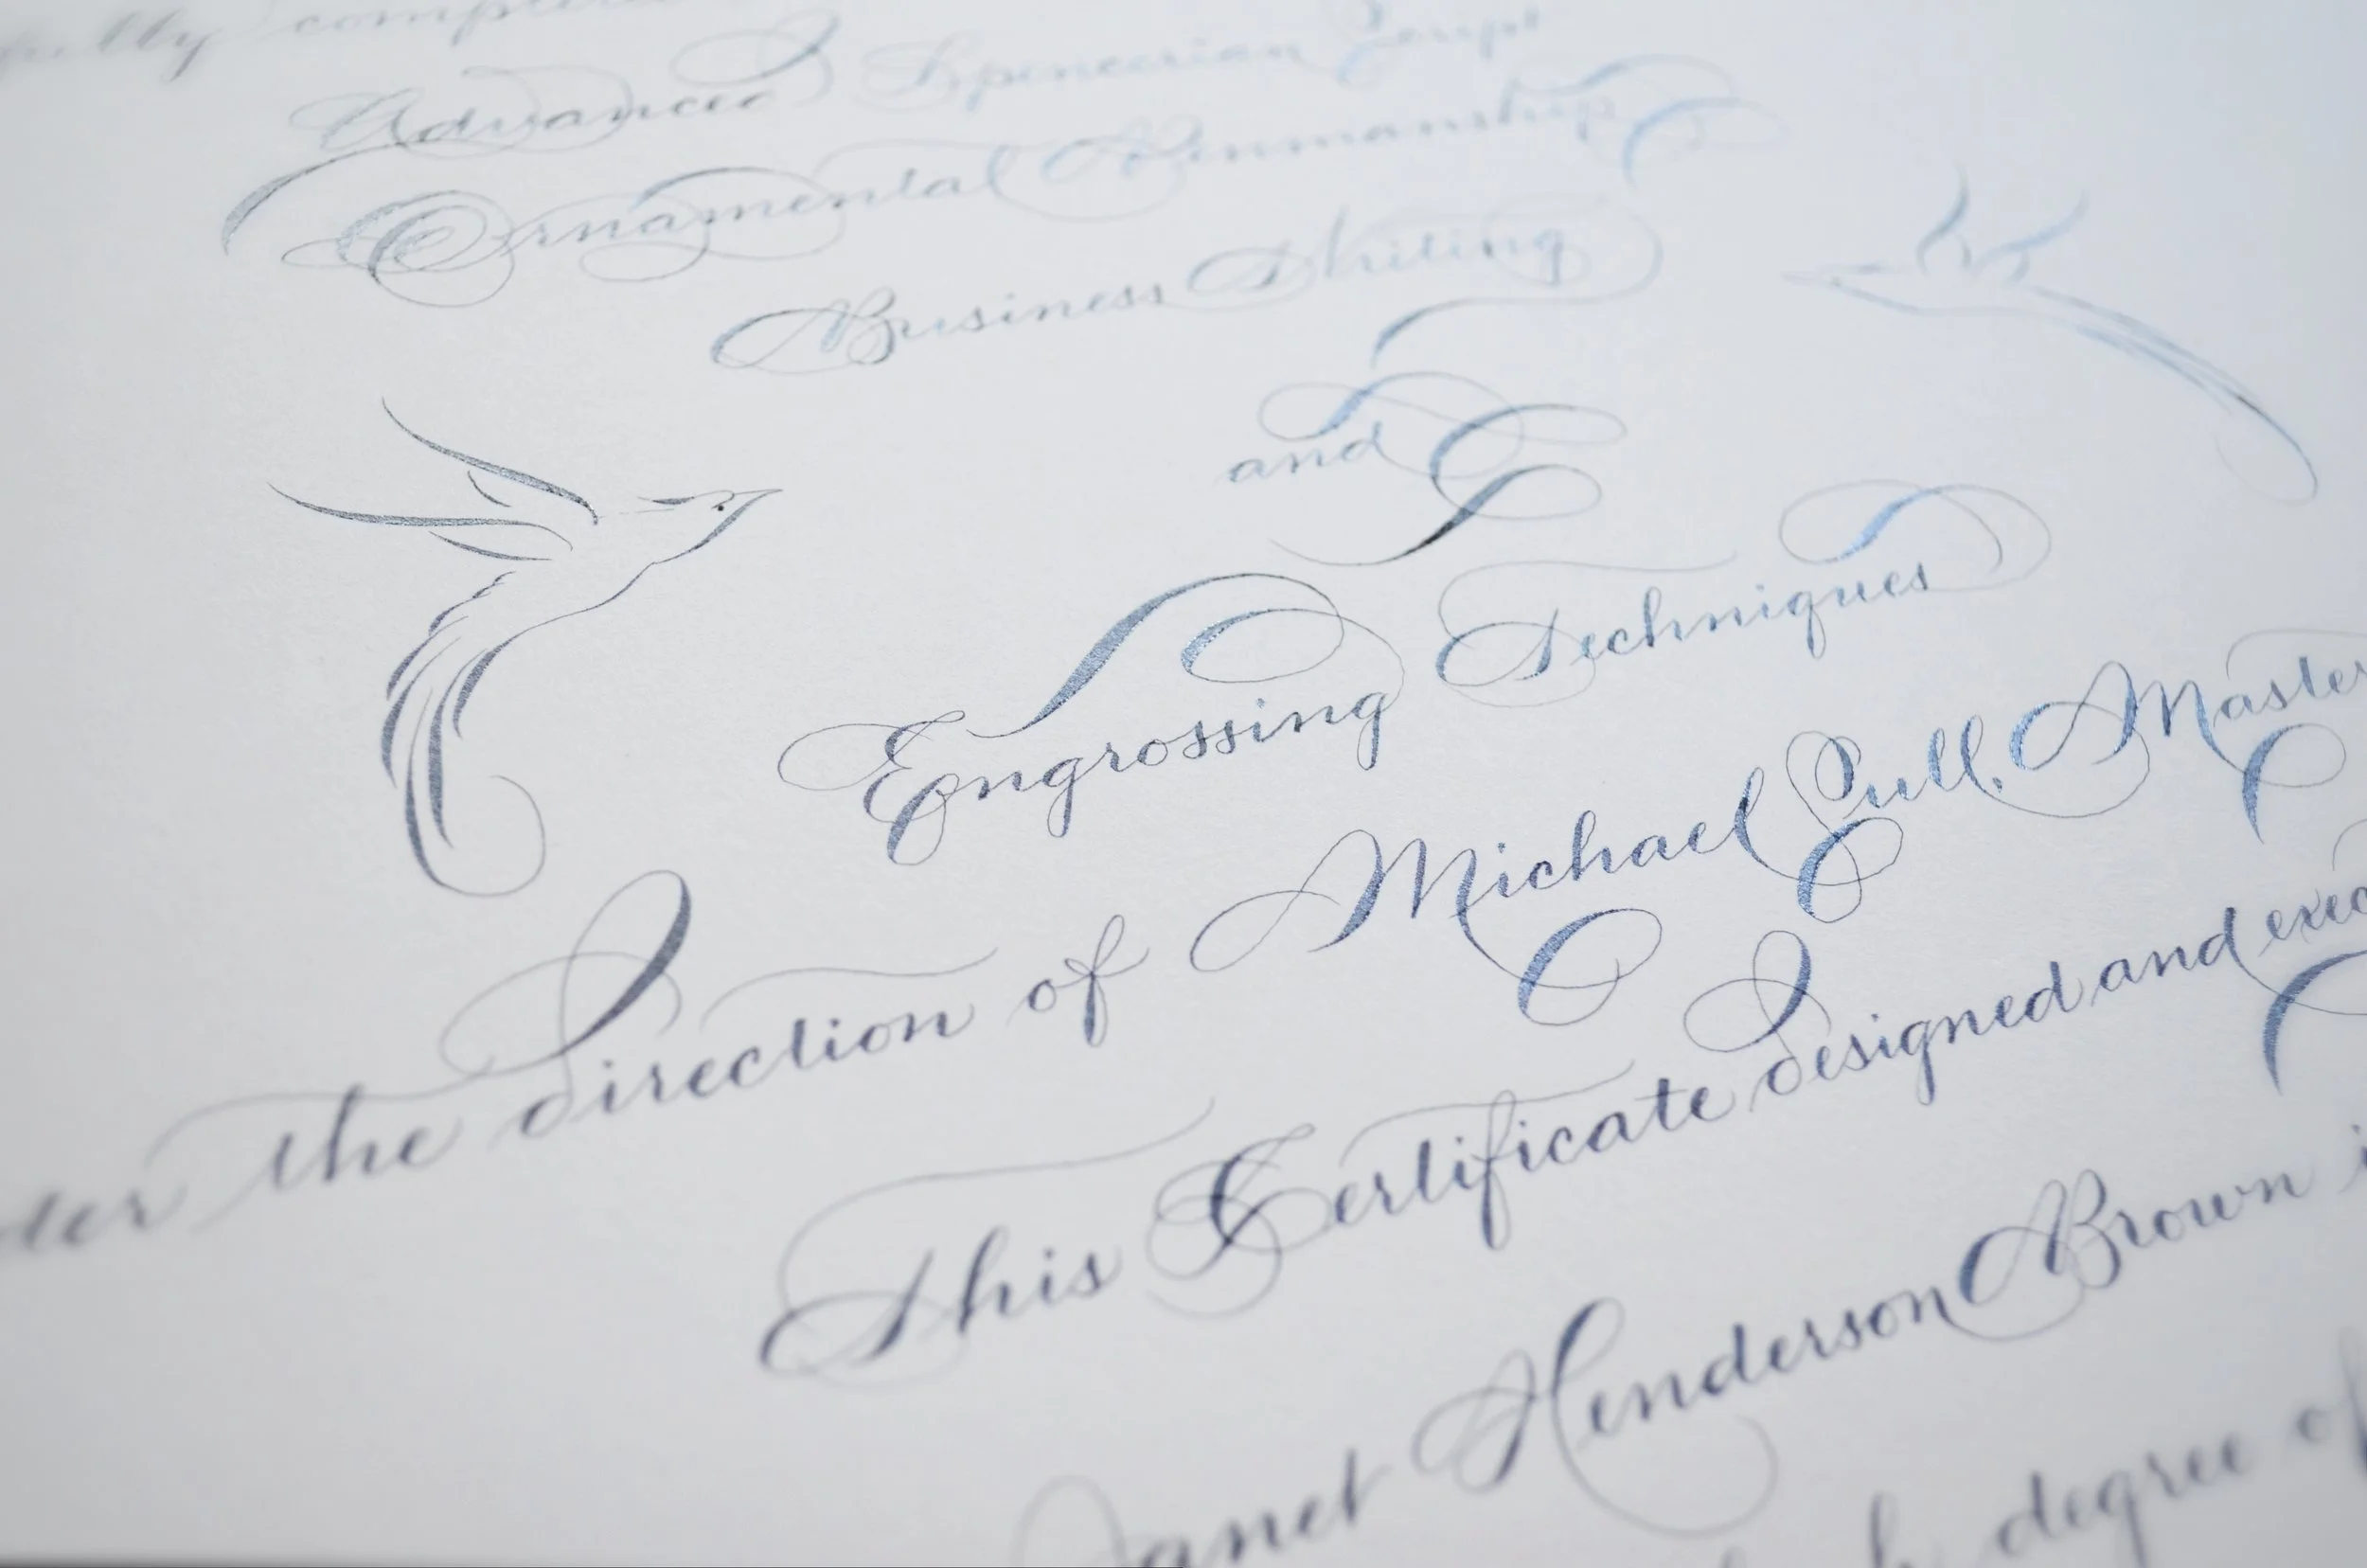 fully
Advanced Spencerian Script
Ornamental Penmanship
Business Writing
and
Engrossing Techniques
the direction of Michael Sull, Master
This Certificate designed and
Janet Henderson Brown
degree of